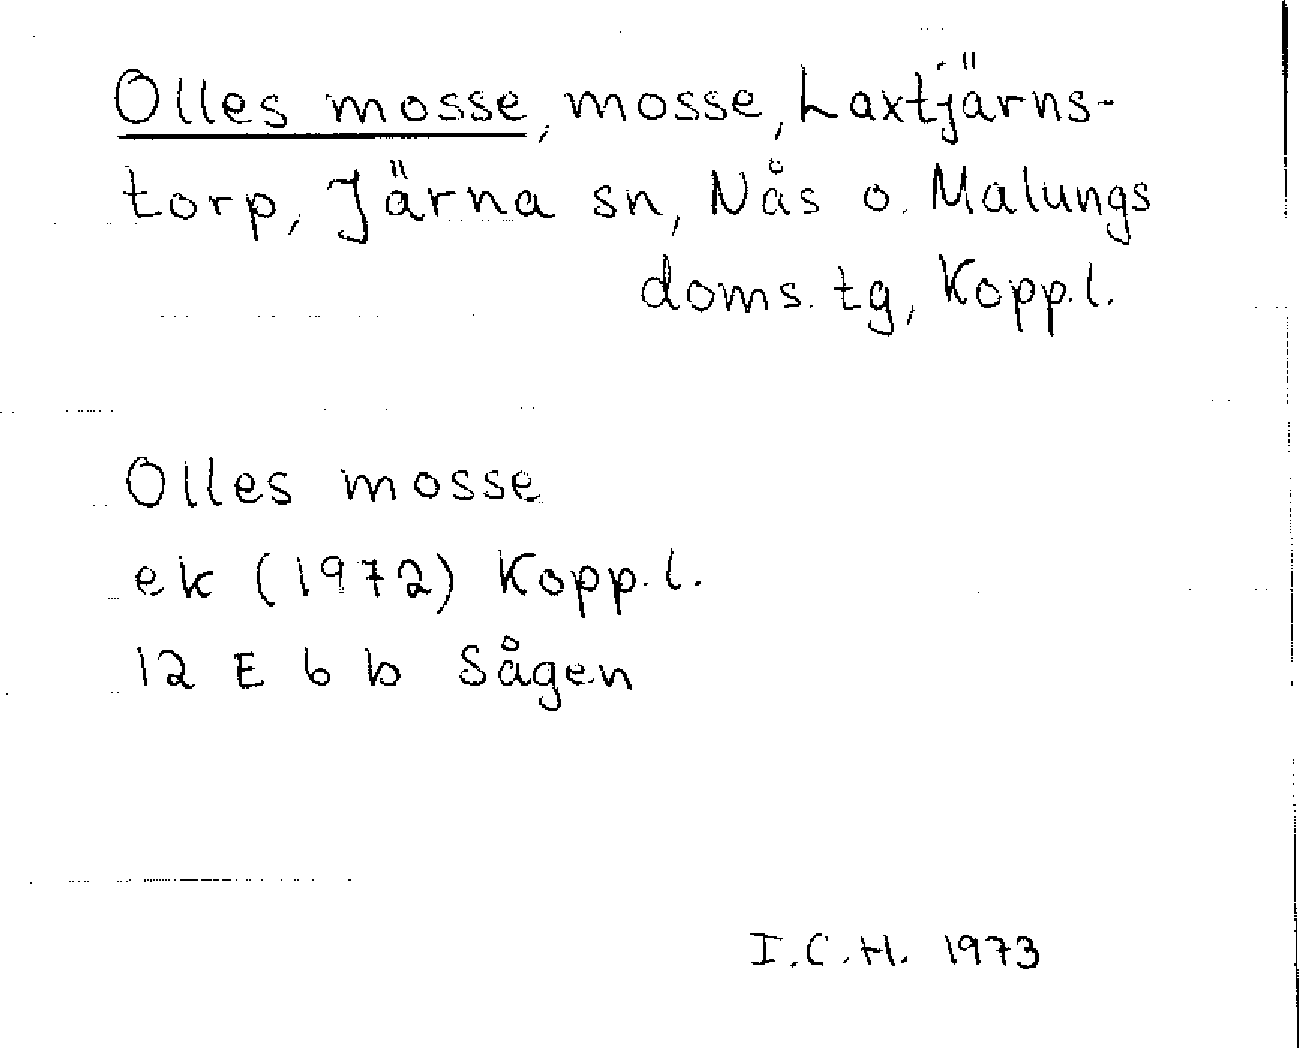 Olles mosse, mosse, Laxtjärns-
torp, Järna sn, Nås o. Malungs
doms. tg, Kopp. l.
Olles mosse
ek (1972) Kopp. l.
12 E 6 b Sågen
I.C.H. 1973